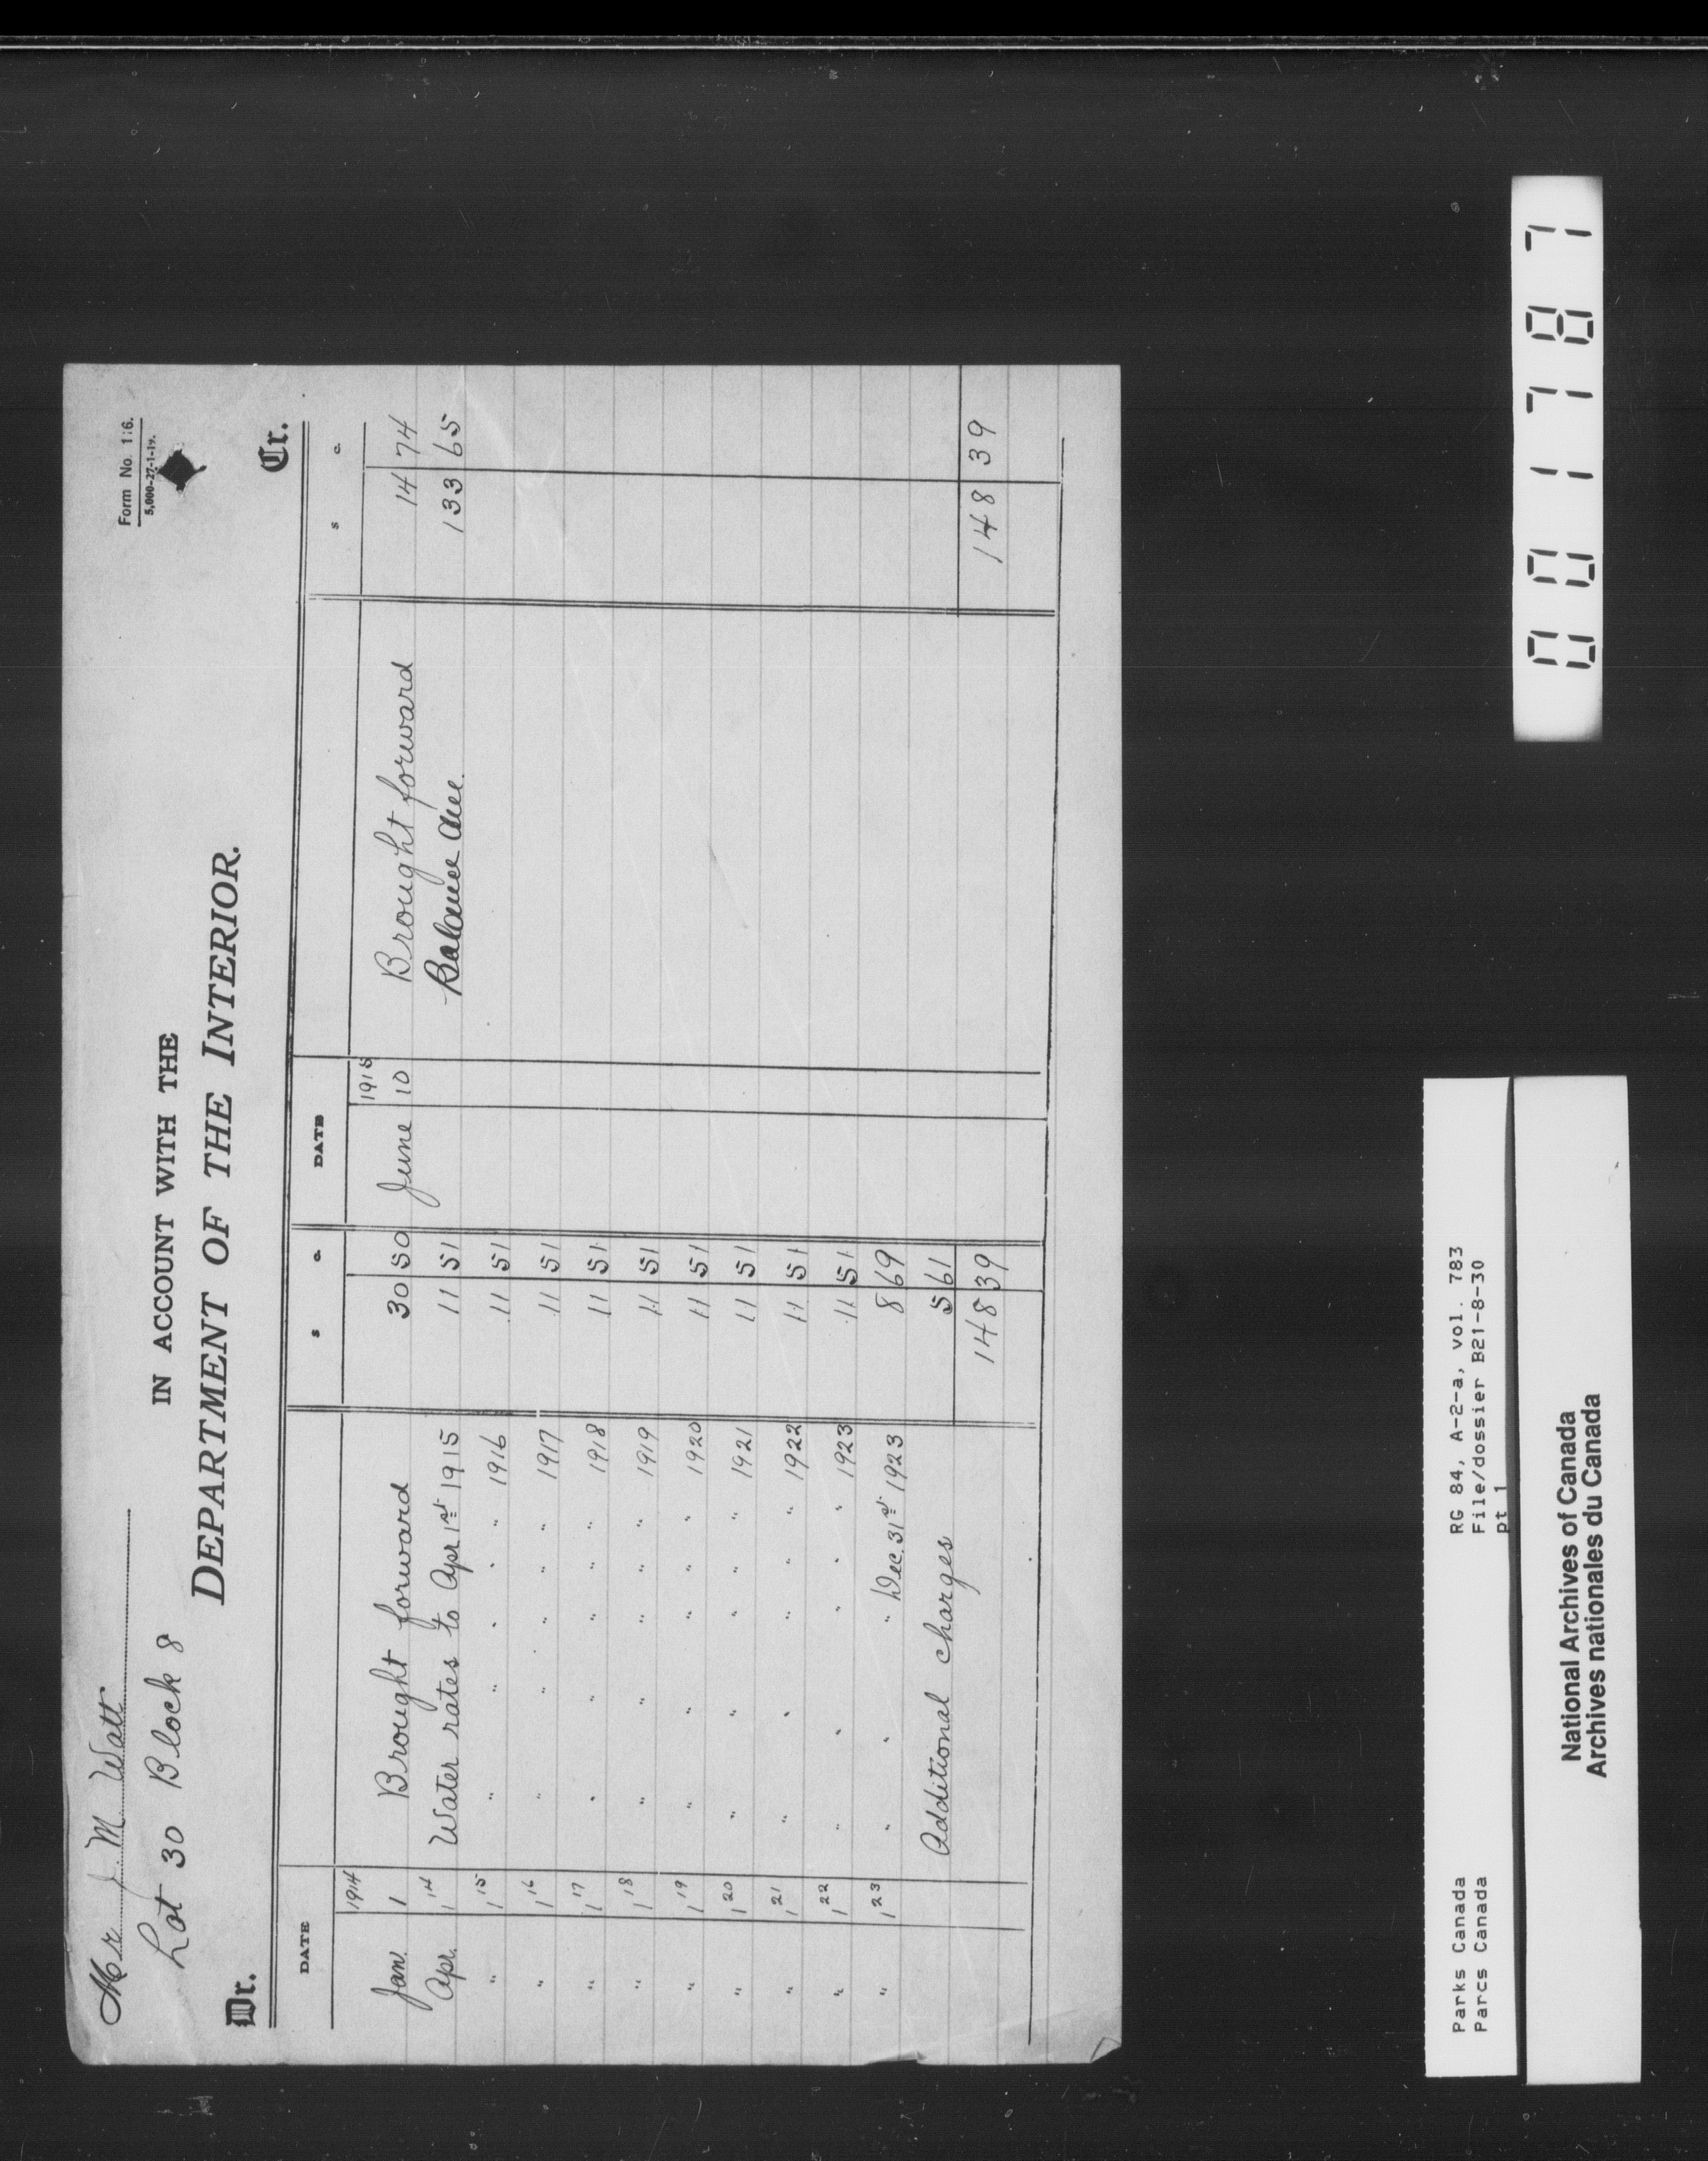 Form No. 116.
5,000-27-1-19.
Mr J. M. Watt
Lot 30 Block 8
IN ACCOUNT WITH THE
DEPARTMENT OF THE INTERIOR.
Dr. Cr.
DATE $ c. DATE $ c.
1914 1915
Jan. 1 Brought forward 30 50 June 10 Brought forward 14 74
Apr. 1 14 Water rates to Apr 1st 1915 11 51 Balance due 133 65
" 1 15 " " " " " 1916 11 51
" 1 16 " " " " " 1917 11 51
" 1 17 " " " " " 1918 11 51
" 1 18 " " " " " 1919 11 51
" 1 19 " " " " " 1920 11 51
" 1 20 " " " " " 1921 11 51
" 1 21 " " " " " 1922 11 51
" 1 22 " " " " " 1923 11 51
" 1 23 " " " Dec. 31st 1923 8 69
Additional charges 5 61
148 39 148 39
Parks Canada RG 84, A-2-a, vol. 783
Parcs Canada File/dossier B21-8-30
pt 1
National Archives of Canada
Archives nationales du Canada
001787